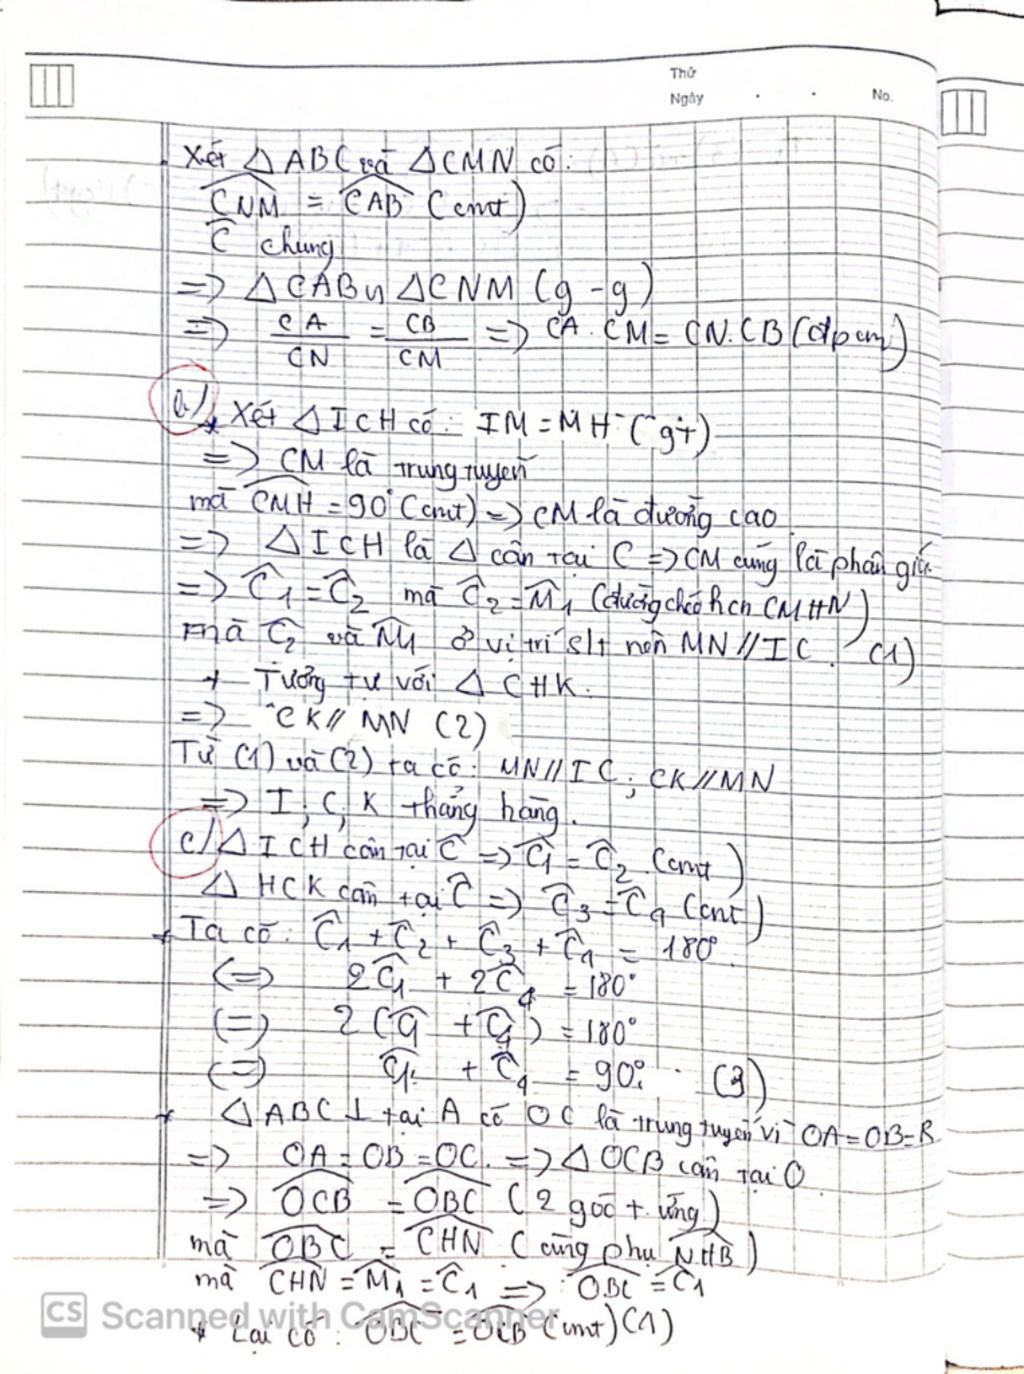 Thứ
Ngày . . No.
Xét △ABC và △CMN có:
CNM = CAB (cmt)
C chung
=> △CAB ∽ △CNM (g-g)
=> CA/CN = CB/CM => CA.CM = CN.CB (đpcm)
b/ * Xét △ICH có: IM = MH (gt)
=> CM là trung tuyến
mà CMH = 90° (cmt) => CM là đường cao
=> △ICH là △ cân tại C => CM cũng là phân giác
=> C1 = C2 mà C2 = M1 (đường chéo hcn CMHN)
mà C2 và M1 ở vị trí slt nên MN//IC. (1)
+ Tương tự với △CHK.
=> CK// MN (2)
Từ (1) và (2) ta có: MN//IC; CK//MN
=> I, C, K thẳng hàng.
c/ △ICH cân tại C => C1 = C2 (cmt)
△HCK cân tại C => C3 = C4 (cmt)
* Ta có: C1 + C2 + C3 + C4 = 180°
(=) 2C1 + 2C4 = 180°
(=) 2(C1 + C4) = 180°
(=) C1 + C4 = 90° (3)
* △ABC ⊥ tại A có OC là trung tuyến vì OA=OB=R
=> OA = OB = OC. => △OCB cân tại O
=> OCB = OBC (2 góc t. ứng)
mà OBC = CHN (cùng phụ NHB)
mà CHN = M1 = C1 => OBC = C1
* Lại có: OBC = OCB (cmt) (1)
CS Scanned with CamScanner
No.